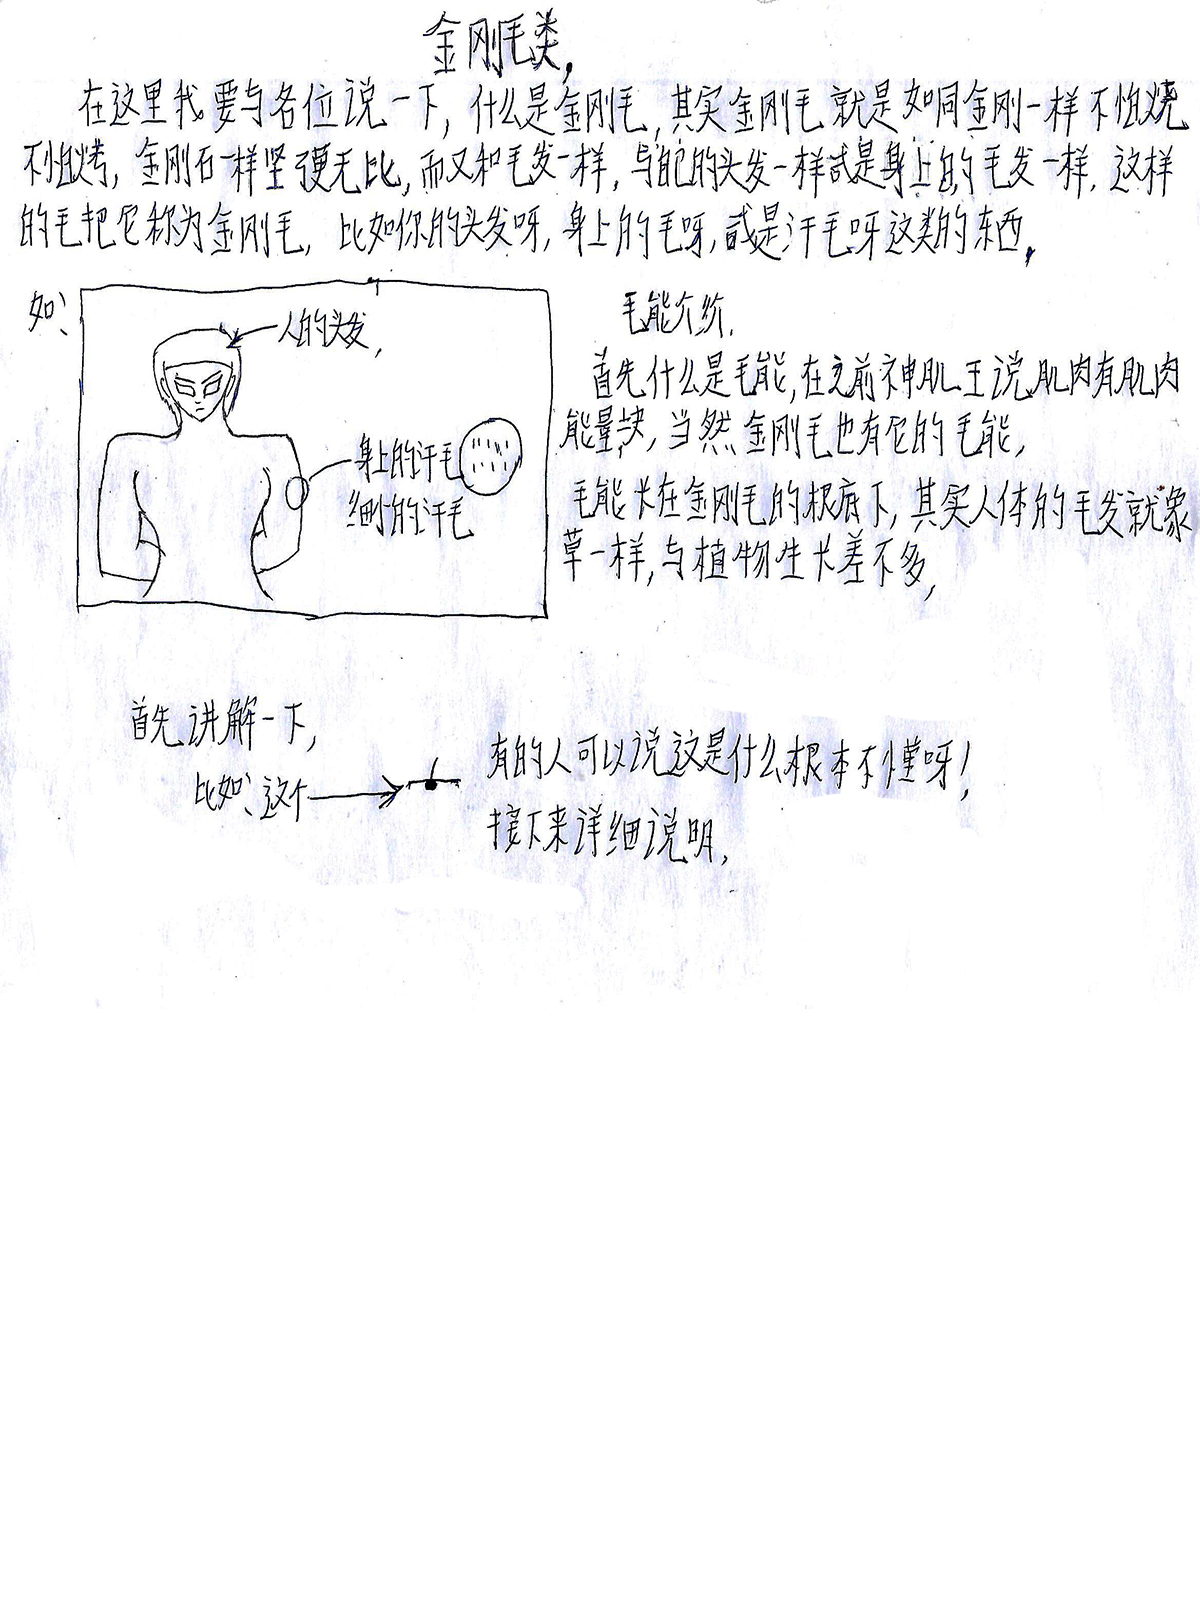 金刚毛类,
在这里我要与各位说一下,什么是金刚毛,其实金刚毛就是如同金刚一样不怕烧
不怕烤,金刚石一样坚硬无比,而又和毛发一样,与的头发一样或是身上的毛发一样.这样
的毛把它称为金刚毛,比如你的头发呀,身上的毛呀,或是汗毛呀这类的东西,
如:
人的头发,
身上的汗毛
细小的汗毛
毛能介绍.
首先什么是毛能,在之前神肌王说肌肉有肌肉
能量块,当然金刚毛也有它的毛能,
毛能长在金刚毛的根底下,其实人体的毛发就象
草一样,与植物生长差不多,
首先讲解一下,
比如:这个
有的人可以说这是什么根本不懂呀!
接下来详细说明,